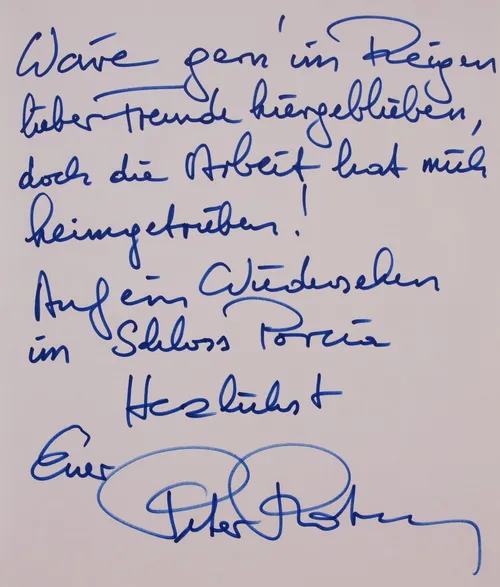 Wäre gern' im Reigen
lieber Freunde hiergeblieben,
doch die Arbeit hat mich
heimgetrieben!
Auf ein Wiedersehen
im Schloss Porcia
Herzlichst
Euer
Peter